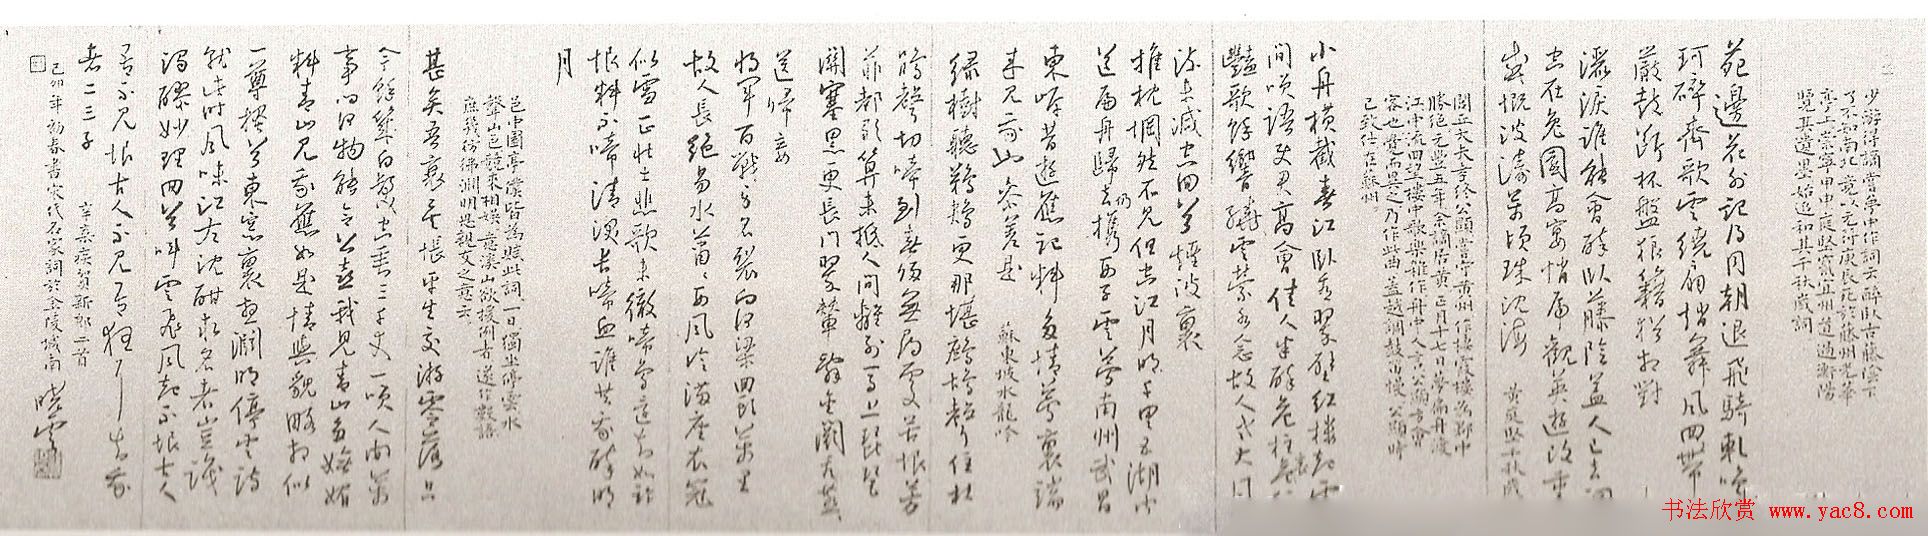 少游得謫嘗夢中作詞云醉臥古藤陰下
了不知南北竟以元符庚辰死於藤州光華
亭上崇寧甲申庭堅竄宜州道過衡陽
覽其遺墨始追和其千秋歲詞
苑邊花外記得同朝退飛騎軋鳴
珂碎齊歌雲繞扇趙舞風回帶
嚴鼓斷杯盤狼藉猶相對
灑淚誰能會醉臥藤陰蓋人已去詞
空在兔園高宴悄虎觀英遊改重
感慨波濤萬頃珠沈海 黃庭堅千秋歲
閭丘大夫孝終公顯嘗守黃州作棲霞樓為郡中
勝絕元豐五年余謫居黃正月十七日夢扁舟渡
江中流回望樓中歌樂雜作舟中人言公顯方會
客也覺而異之乃作此曲蓋越調鼓笛慢公顯時
已致仕在蘇州
小舟橫截春江臥看翠壁紅樓起雲
間笑語使君高會佳人半醉危柱哀
豔歌餘響繞雲縈水念故人老大風
流未減空回首煙波裏
推枕惘然不見但空江月明千里五湖聞
道扁舟歸去仍攜西子雲夢南州武昌
東岸昔遊應記料多情夢裏端
來見我也參差是 蘇東坡水龍吟
綠樹聽鵜鴂更那堪鷓鴣聲住杜
鵑聲切啼到春歸無尋處苦恨芳
菲都歇算未抵人間離別馬上琵琶
關塞黑更長門翠輦辭金闕看燕燕
送歸妾
將軍百戰身名裂向河梁回頭萬里
故人長絕易水蕭蕭西風冷滿座衣冠
似雪正壯士悲歌未徹啼鳥還知如許
恨料不啼清淚長啼血誰共我醉明
月
邑中園亭僕皆為賦此詞一日獨坐停雲水
聲山色競來相娛意溪山欲援例者遂作數語
庶幾彷彿淵明思親友之意云
甚矣吾衰矣悵平生交遊零落只
今餘幾白髮空垂三千丈一笑人間萬
事問何物能令公喜我見青山多嫵媚
料青山見我應如是情與貌略相似
一尊搔首東窗裏想淵明停雲詩
就此時風味江左沈酣求名者豈識
濁醪妙理回首叫雲飛風起不恨古人
吾不見恨古人不見吾狂耳知我
者二三子 辛棄疾賀新郎二首
己卯年初春書宋代名家詞於金陵城南 曉雲
书法欣赏 www.yac8.com